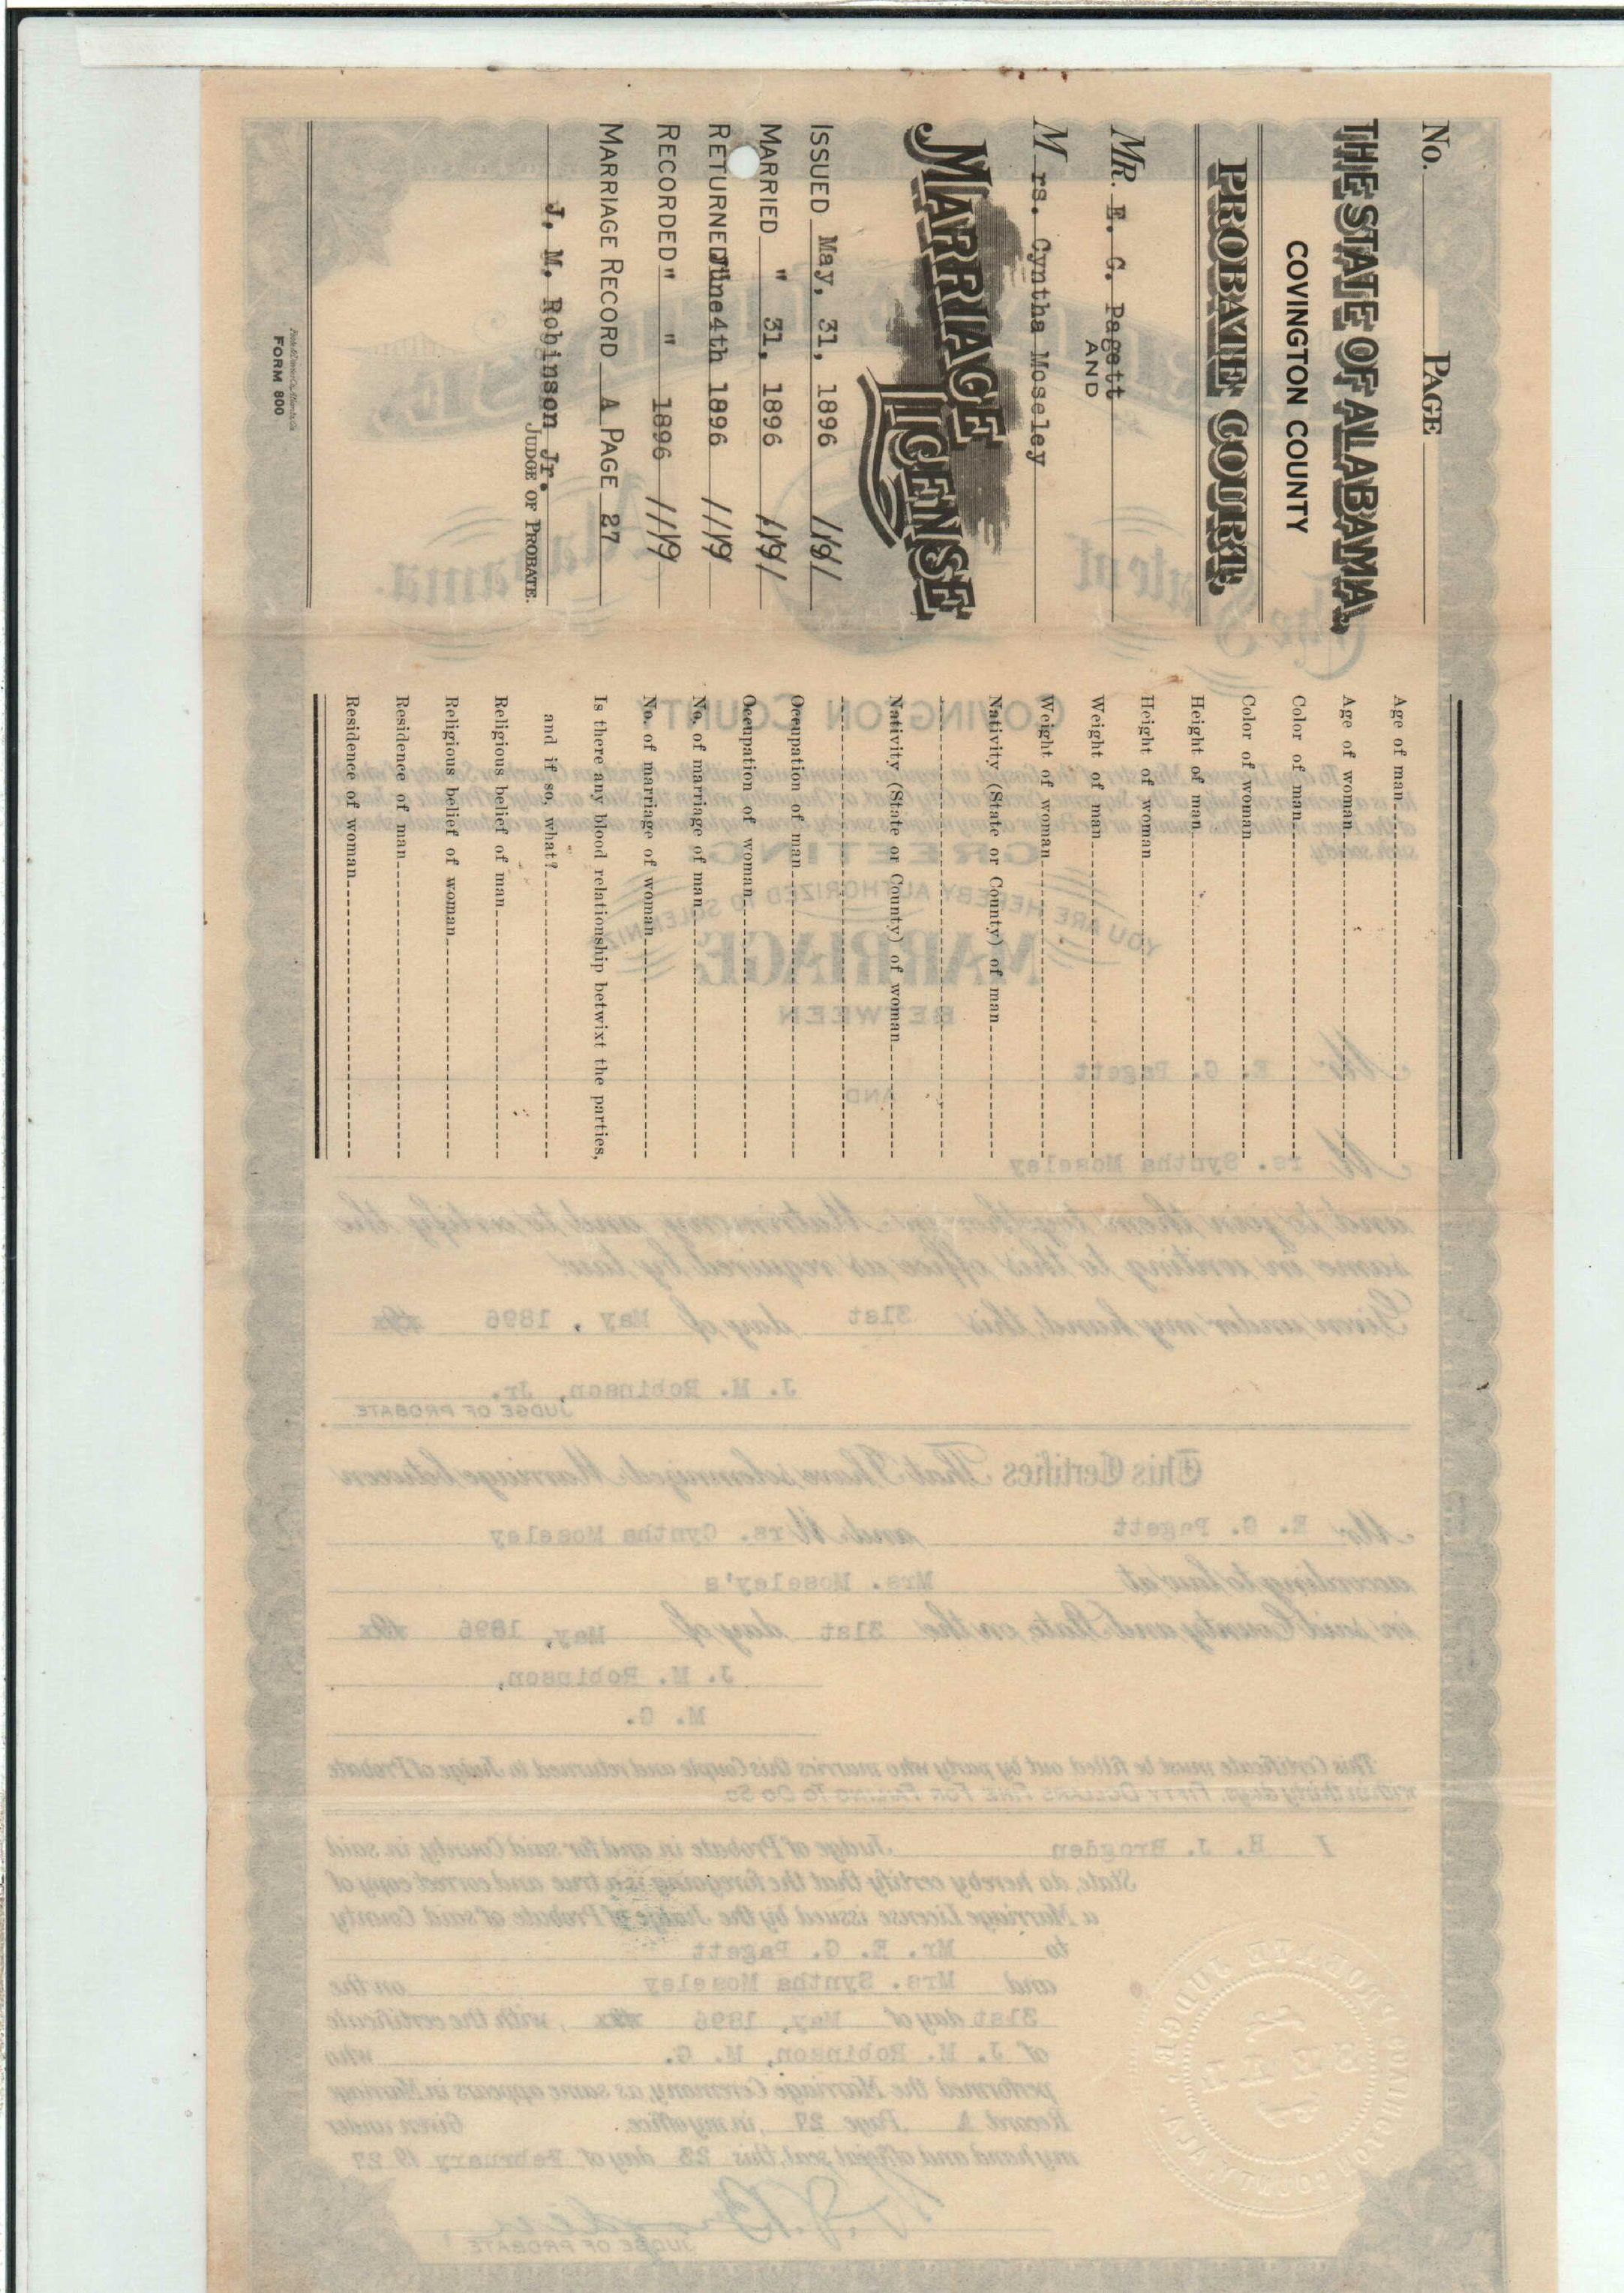 No. PAGE
THE STATE OF ALABAMA,
COVINGTON COUNTY
PROBATE COURT.
MR. E. G. Pagett
AND
M rs. Cyntha Moseley
MARRIAGE LICENSE
ISSUED May, 31, 1896 191
MARRIED " 31, 1896 191
RETURNED June 4th 1896 19
RECORDED " " 1896 19
MARRIAGE RECORD A PAGE 27
J. M. Robinson Jr.
JUDGE OF PROBATE.
FORM 800
Age of man
Age of woman
Color of man
Color of woman
Height of man
Height of woman
Weight of man
Weight of woman
Nativity (State or County) of man
Nativity (State or County) of woman
Occupation of man
Occupation of woman
No. of marriage of man
No. of marriage of woman
Is there any blood relationship betwixt the parties,
and if so, what?
Religious belief of man
Religious belief of woman
Residence of man
Residence of woman
The State of Alabama.
COVINGTON COUNTY
GREETING:
YOU ARE HEREBY AUTHORIZED TO SOLEMNIZE
MARRIAGE
BETWEEN
Mr E. G. Pagett
AND
M rs. Syntha Moseley
and to join them together in Matrimony, and to certify the
same in writing to this office as required by law.
Given under my hand, this 31st day of May, 1896
J. M. Robinson, Jr.
JUDGE OF PROBATE
This Certifies That I have solemnized Marriage between
Mr E. G. Pagett and M rs. Cyntha Moseley
according to law at Mrs. Moseley's
in said County and State, on the 31st day of May, 1896
J. M. Robinson,
M. G.
This Certificate must be filled out by party who marries this Couple and returned to Judge of Probate
within thirty days. FIFTY DOLLARS FINE FOR FAILING TO DO SO
I H. J. Brogden Judge of Probate in and for said County, in said
State, do hereby certify that the foregoing is a true and correct copy of
a Marriage License issued by the Judge of Probate of said County
to Mr. E. G. Pagett
and Mrs. Syntha Moseley on the
31st day of May, 1896, with the certificate
of J. M. Robinson, M. G. who
performed the Marriage Ceremony, as same appears in Marriage
Record A Page 27, in my office. Given under
my hand and official seal, this 23 day of February 19 27
JUDGE OF PROBATE
SEAL